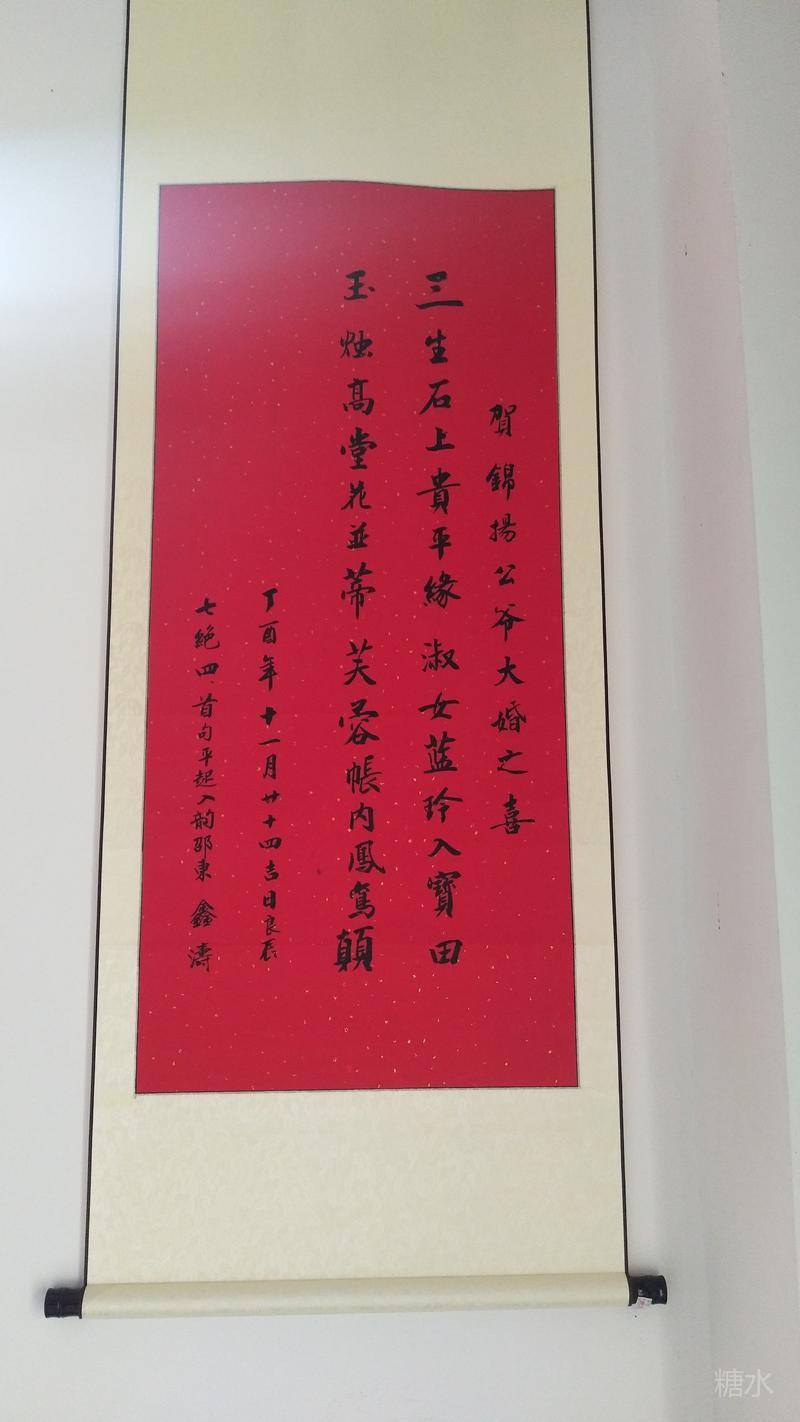 賀錦揚公爷大婚之喜
三生石上貴平緣淑女蓝玲入寶田
玉烛高堂花並蒂芙蓉帳内鳳鸞顛
丁酉年十一月廿十四吉日良辰
七絕四、首句平起入韵邵東鑫濤
糖水